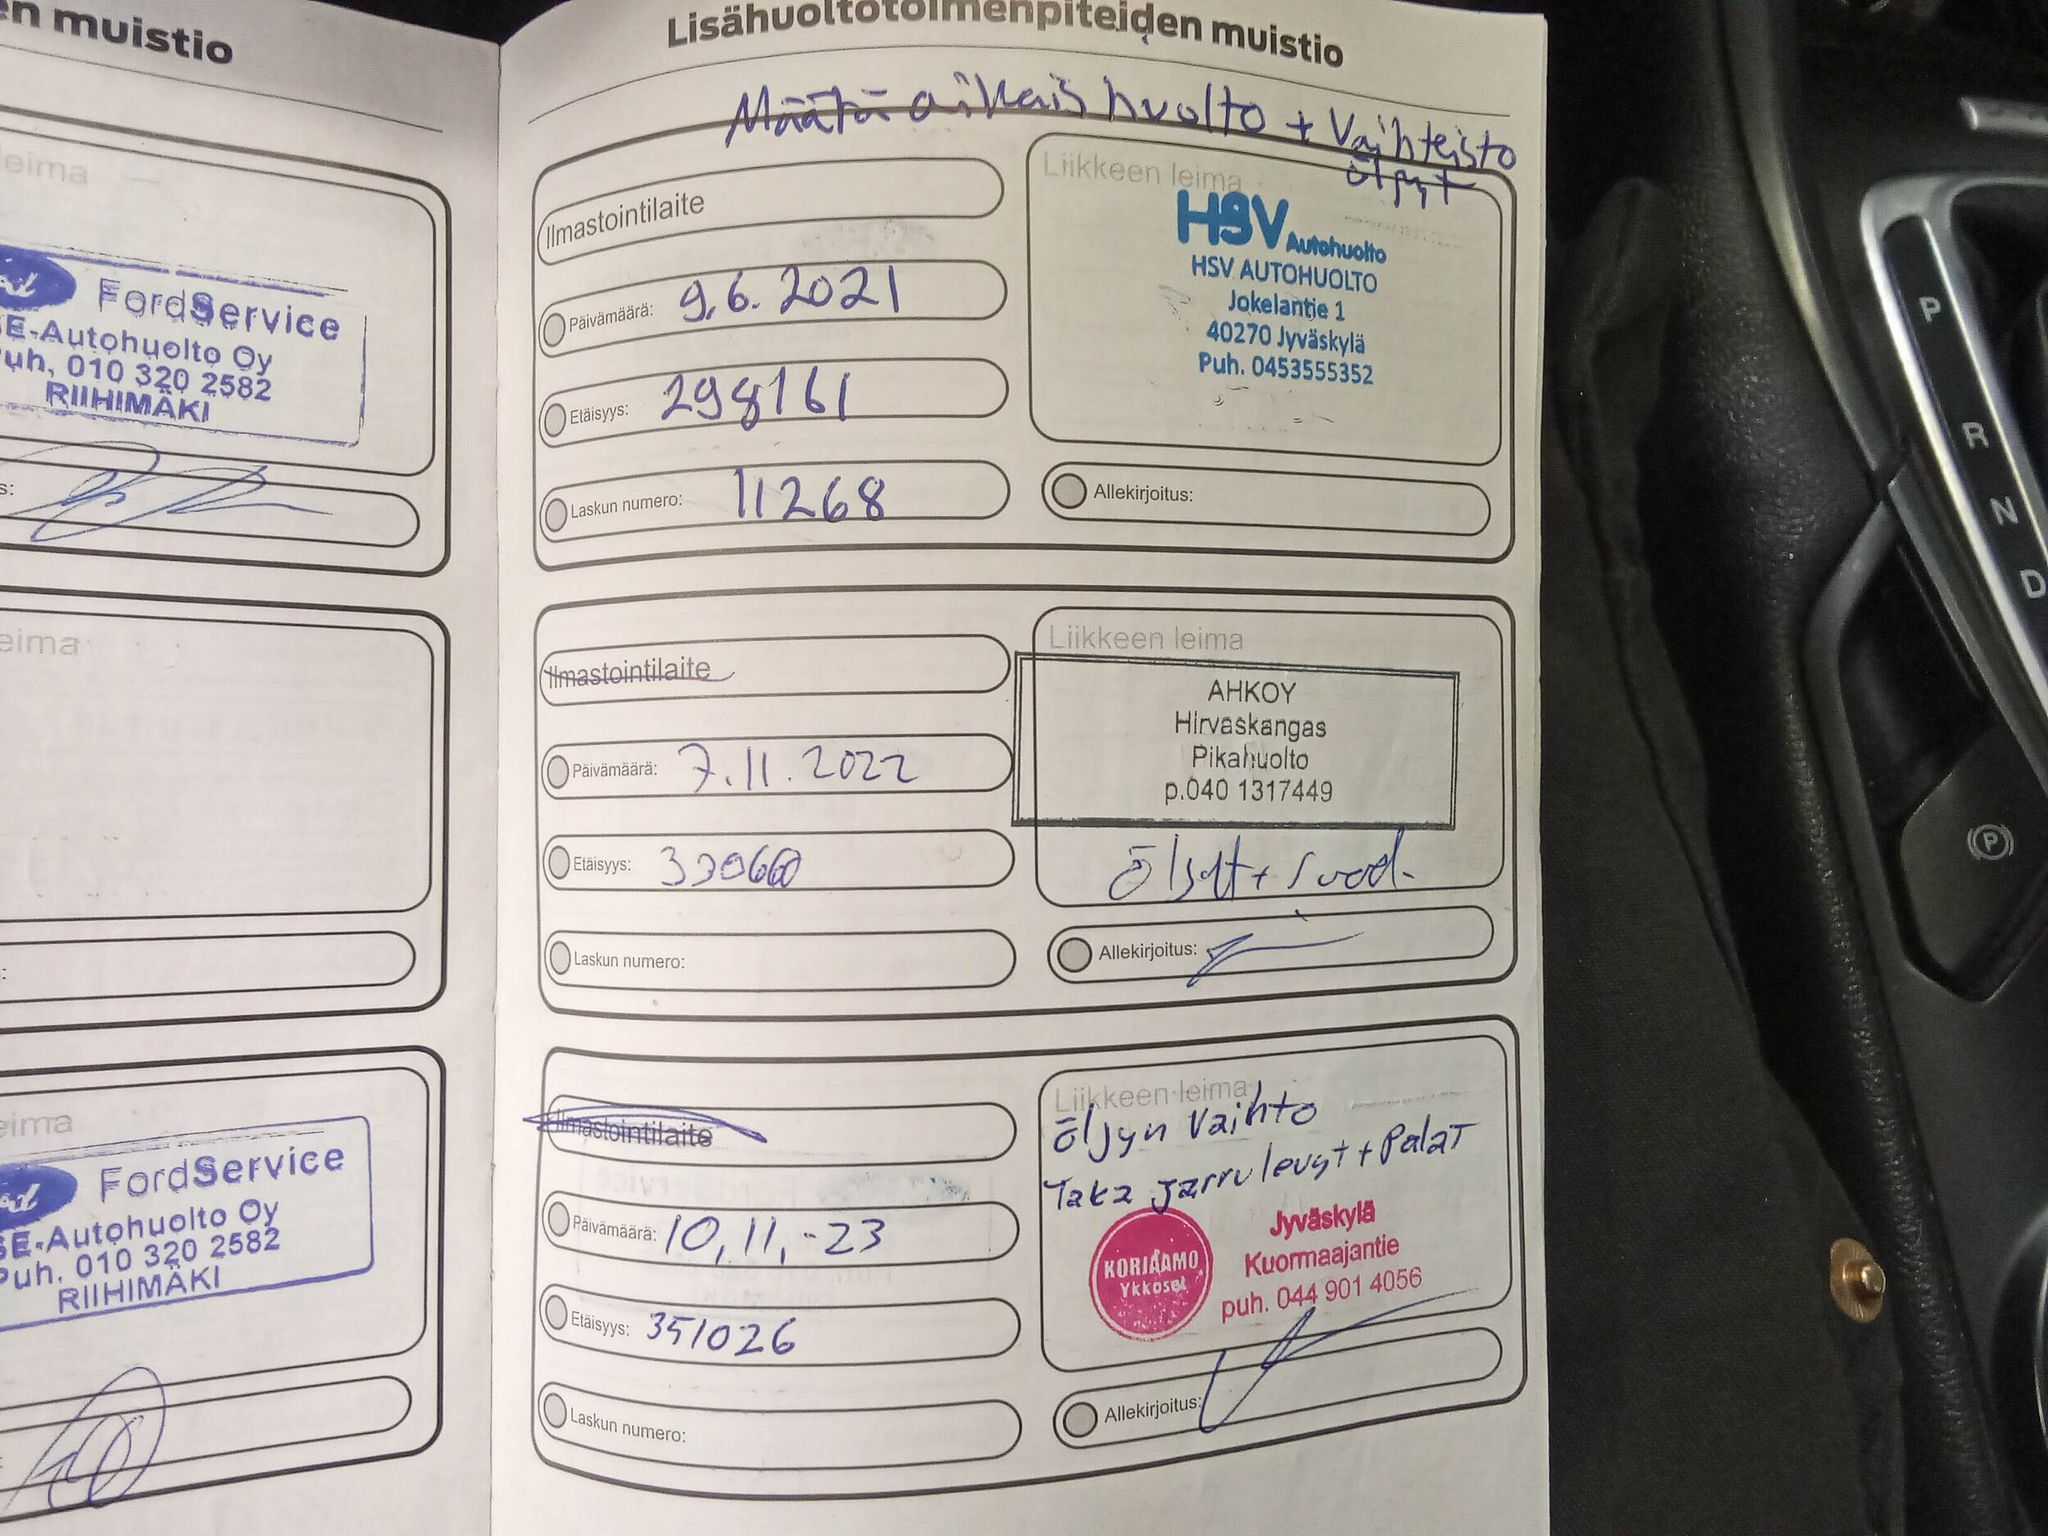 en muistio
eima
FordService
SE-Autohuolto Oy
Puh. 010 320 2582
RIIHIMÄKI
s:
eima
:
eima
FordService
SE-Autohuolto Oy
Puh. 010 320 2582
RIIHIMÄKI
Lisähuoltotoimenpiteiden muistio
Määrä aikais huolto + Vaihteisto
öljyt
Ilmastointilaite
Päivämäärä: 9.6.2021
Etäisyys: 298161
Laskun numero: 11268
Liikkeen leima
HSV Autohuolto
HSV AUTOHUOLTO
Jokelantie 1
40270 Jyväskylä
Puh. 0453555352
Allekirjoitus:
Ilmastointilaite
Päivämäärä: 7.11.2022
Etäisyys: 330660
Laskun numero:
Liikkeen leima
AHKOY
Hirvaskangas
Pikahuolto
p.040 1317449
Öljyt + suod.
Allekirjoitus:
Ilmastointilaite
Päivämäärä: 10,11,-23
Etäisyys: 351026
Laskun numero:
Liikkeen leima
Öljyn Vaihto
Taka jarrulevyt + Palat
KORJAAMO
Ykköset
Jyväskylä
Kuormaajantie
puh. 044 901 4056
Allekirjoitus:
P
R
N
D
P